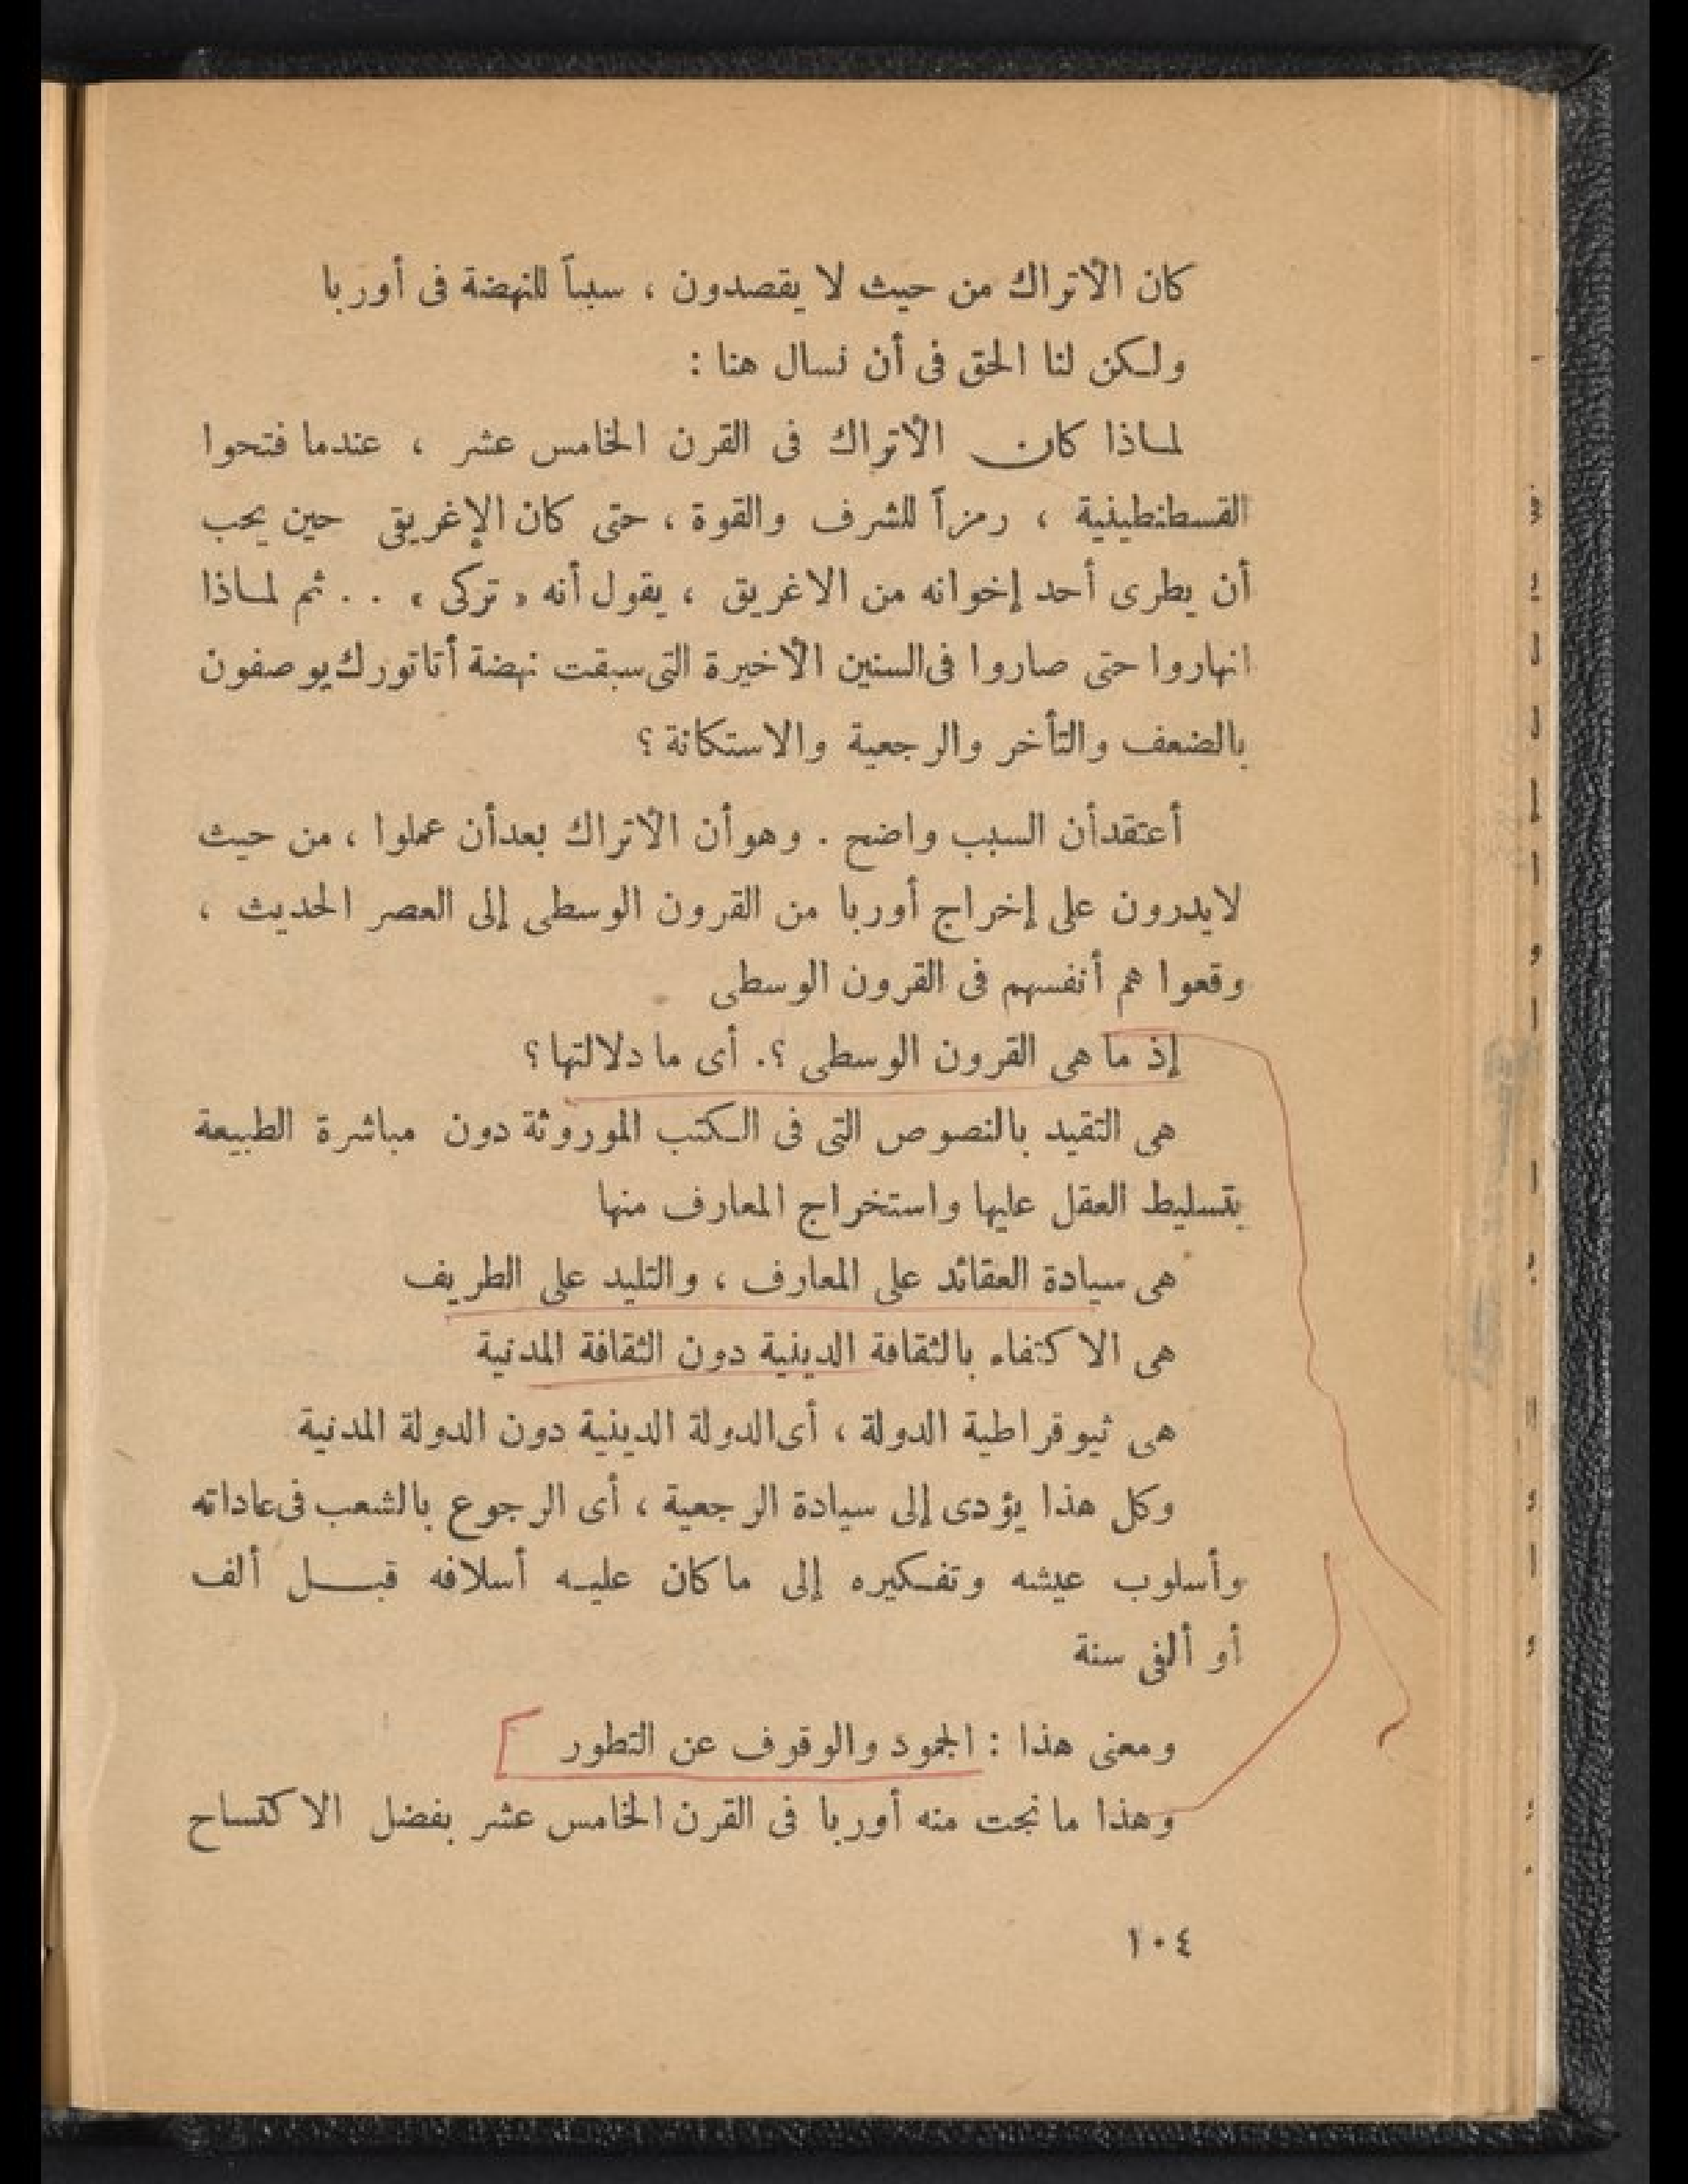 كان الأتراك من حيث لا يقصدون ، سبباً للنهضة فى أوربا
ولكن لنا الحق فى أن نسال هنا :
لماذا كان الأتراك فى القرن الخامس عشر ، عندما فتحوا
القسطنطينية ، رمزاً للشرف والقوة ، حتى كان الإغريقى حين يحب
أن يطرى أحد إخوانه من الاغريق ، يقول أنه « تركى » . . ثم لماذا
انهاروا حتى صاروا فى السنين الأخيرة التى سبقت نهضة أتاتورك يوصفون
بالضعف والتأخر والرجعية والاستكانة ؟
أعتقد أن السبب واضح . وهو أن الأتراك بعد أن عملوا ، من حيث
لا يدرون على إخراج أوربا من القرون الوسطى إلى العصر الحديث ،
وقعوا هم أنفسهم فى القرون الوسطى
إذ ما هى القرون الوسطى ؟. أى ما دلالتها ؟
هى التقيد بالنصوص التى فى الكتب الموروثة دون مباشرة الطبيعة
بتسليط العقل عليها واستخراج المعارف منها
هى سيادة العقائد على المعارف ، والتليد على الطريف
هى الاكتفاء بالثقافة الدينية دون الثقافة المدنية
هى ثيوقراطية الدولة ، أى الدولة الدينية دون الدولة المدنية
وكل هذا يؤدى إلى سيادة الرجعية ، أى الرجوع بالشعب فى عاداته
وأسلوب عيشه وتفكيره إلى ما كان عليه أسلافه قبل ألف
أو ألفى سنة
ومعنى هذا : الجمود والوقوف عن التطور
وهذا ما نجت منه أوربا فى القرن الخامس عشر بفضل الاكتساح
١٠٤